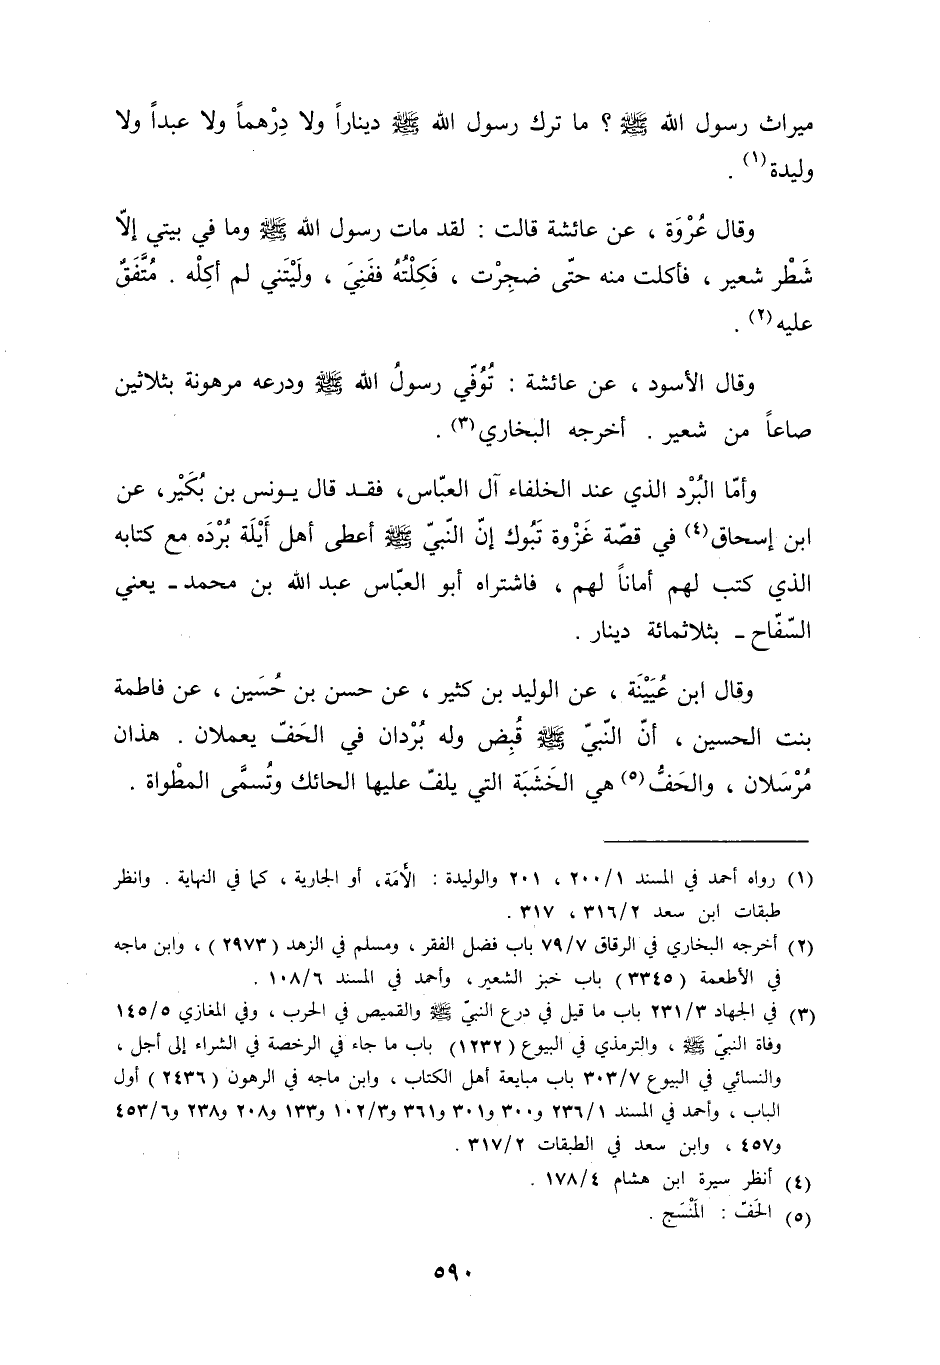 ميراث رسول الله ﷺ ؟ ما ترك رسول الله ﷺ ديناراً ولا دِرْهماً ولا عبداً ولا
وليدة(١) .
وقال عُرْوَة ، عن عائشة قالت : لقد مات رسول الله ﷺ وما في بيتي إلّا
شَطْر شعير ، فأكلت منه حتّى ضجِرْت ، فَكِلْتُهُ ففَنِيَ ، ولَيْتَني لم أكِلْه . مُتَّفَقٌ
عليه(٢) .
وقال الأسود ، عن عائشة : تُوُفّي رسولُ الله ﷺ ودرعه مرهونة بثلاثين
صاعاً من شعير . أخرجه البخاري(٣) .
وأمّا البُرْد الذي عند الخلفاء آل العبّاس، فقد قال يونس بن بُكَيْر، عن
ابن إسحاق(٤) في قصّة غَزْوة تَبُوك إنّ النّبيّ ﷺ أعطى أهل أَيْلَة بُرْدَه مع كتابه
الذي كتب لهم أماناً لهم ، فاشتراه أبو العبّاس عبد الله بن محمد ـ يعني
السّفّاح ـ بثلاثمائة دينار .
وقال ابن عُيَيْنَة ، عن الوليد بن كثير ، عن حسن بن حُسَين ، عن فاطمة
بنت الحسين ، أنّ النّبيّ ﷺ قُبِض وله بُرْدان في الحَفّ يعملان . هذان
مُرْسَلان ، والحَفُّ(٥) هي الخَشَبَة التي يلفّ عليها الحائك وتُسمَّى المطْواة .
(١) رواه أحمد في المسند ٢٠٠/١ ، ٢٠١ والوليدة : الأمَة، أو الجارية ، كما في النهاية . وانظر
طبقات ابن سعد ٣١٦/٢ ، ٣١٧ .
(٢) أخرجه البخاري في الرقاق ٧٩/٧ باب فضل الفقر ، ومسلم في الزهد (٢٩٧٣) ، وابن ماجه
في الأطعمة (٣٣٤٥) باب خبز الشعير، وأحمد في المسند ١٠٨/٦ .
(٣) في الجهاد ٢٣١/٣ باب ما قيل في درع النبيّ ﷺ والقميص في الحرب ، وفي المغازي ١٤٥/٥
وفاة النبيّ ﷺ ، والترمذي في البيوع (١٢٣٢) باب ما جاء في الرخصة في الشراء إلى أجل ،
والنسائي في البيوع ٣٠٣/٧ باب مبايعة أهل الكتاب ، وابن ماجه في الرهون (٢٤٣٦) أول
الباب ، وأحمد في المسند ٢٣٦/١ و٣٠٠ و٣٠١ و٣٦١ و١٠٢/٣ و١٣٣ و٢٠٨ و٢٣٨ و٤٥٣/٦
و٤٥٧ ، وابن سعد في الطبقات ٣١٧/٢ .
(٤) أنظر سيرة ابن هشام ١٧٨/٤ .
(٥) الحَفّ : المَنْسَج .
٥٩٠